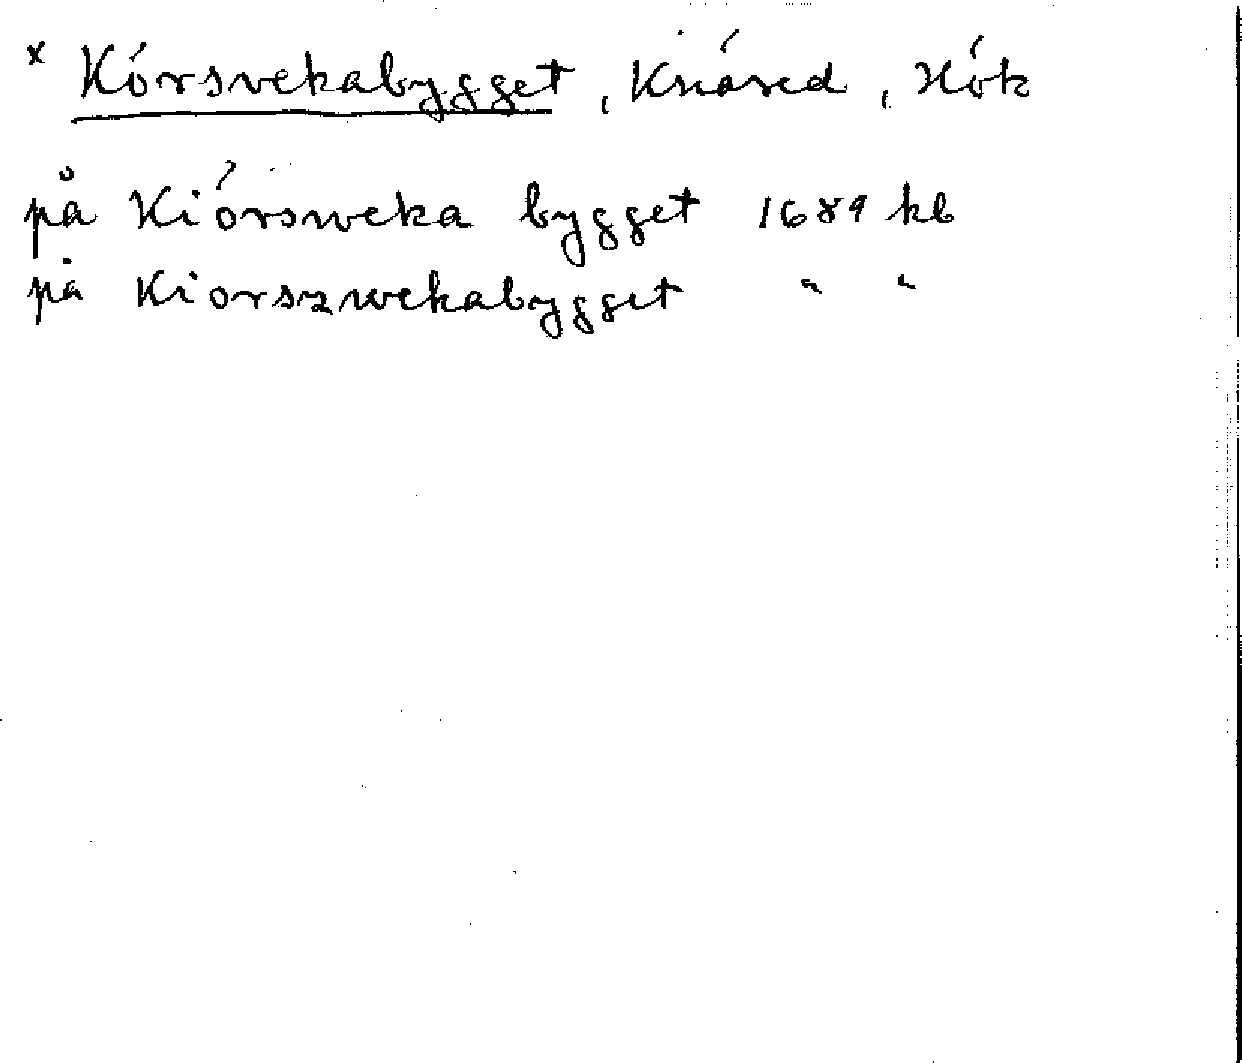 x Kórsvekabygget, Knáred, Hók
på Kiórsweka bygget 1689 kb
på Kiorszwekabygget " "